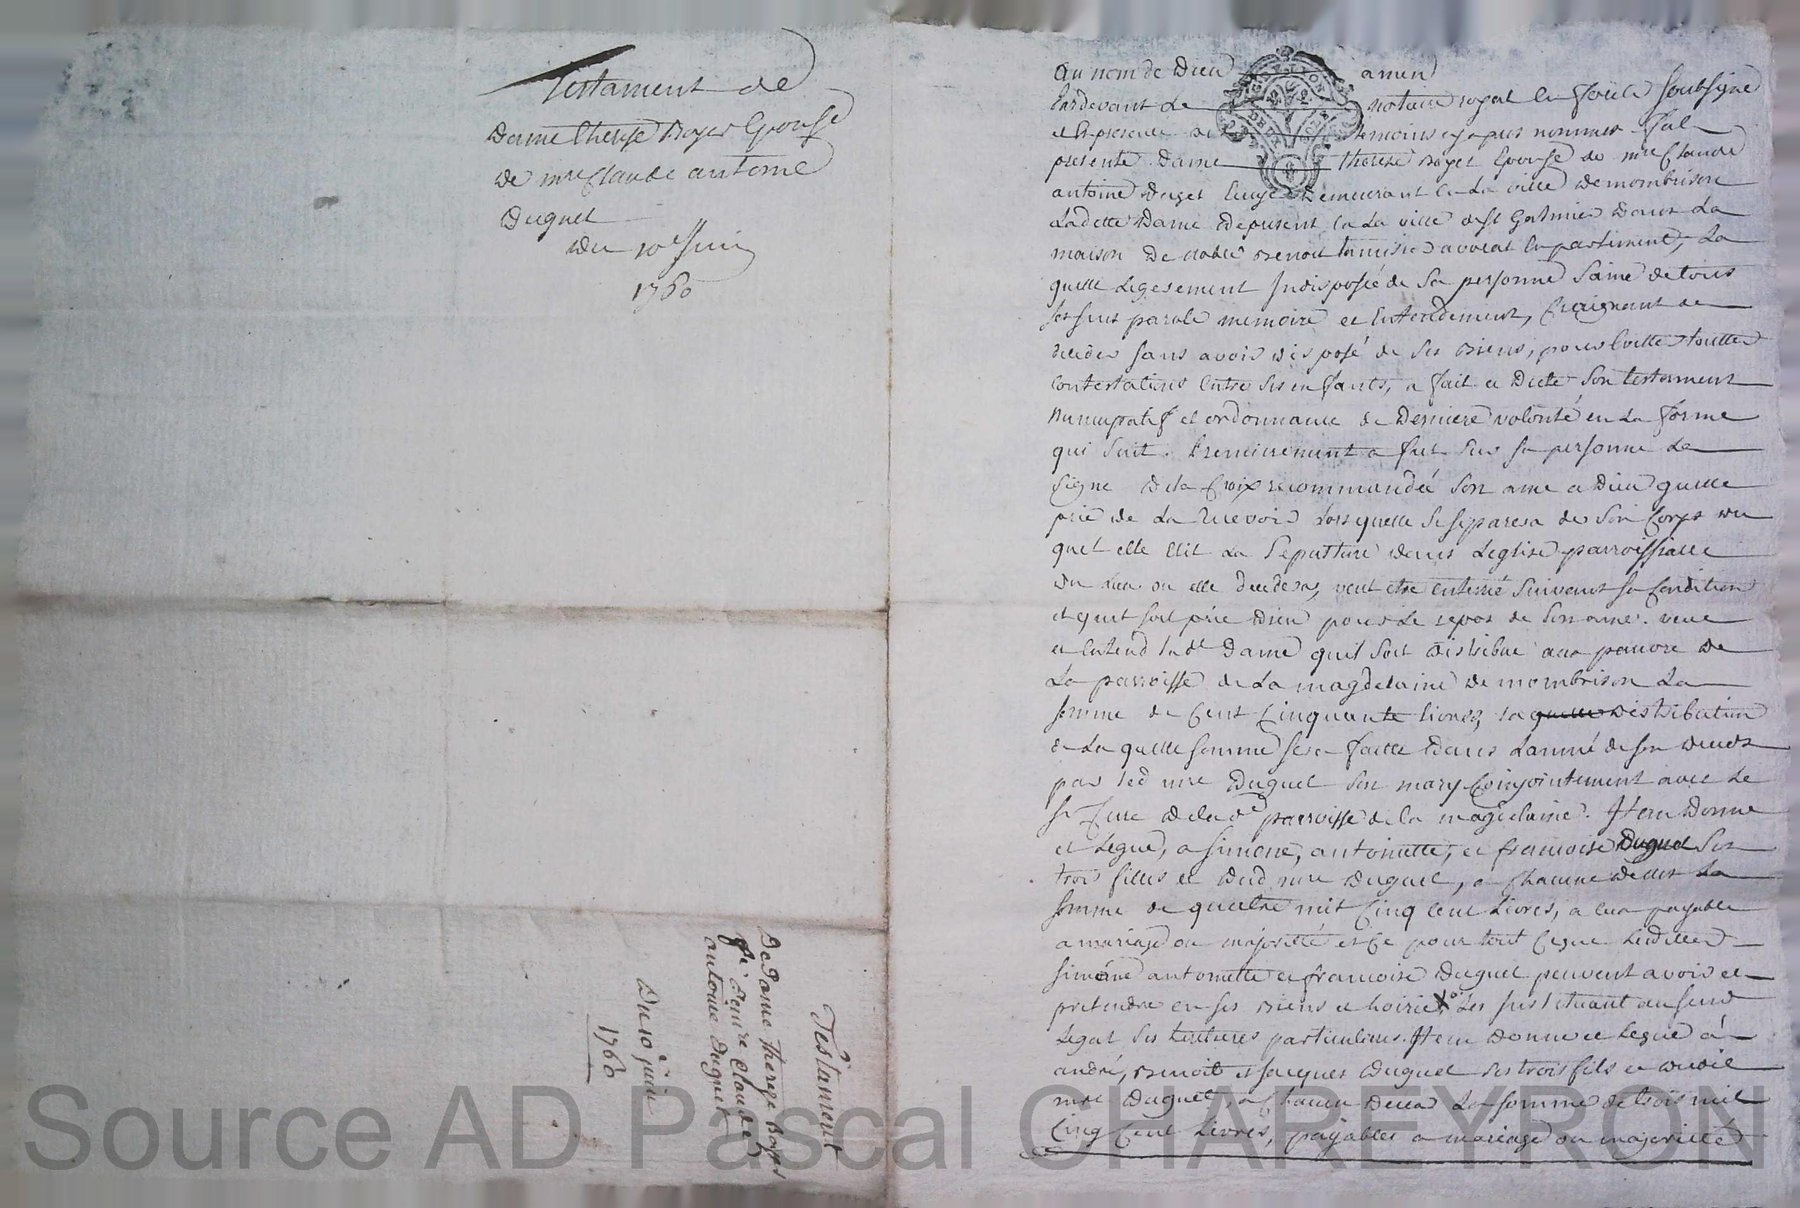 Testament de
Dame therese Boyer Epouse
de mre Claude antoine
Duguet
du 10e Juin
1760
Testament
De Dame Therese Boyer
De Claude
antoine Duguet
Du 10 juin
1760
Au nom de Dieu amen
Pardevant Le notaire royal En forest soubsigné
et En presence des temoins cy apres nommés fut
presente Dame therese Boyer Epouse de mre Claude
antoine Duguet demeurant En La ville de mombrison
Ladette Dame de present En La ville de st Galmier dans La
maison de noble Benoit avocat En parlement, La
quelle Legerement Indisposée de Sa personne Saine de tous
ses sens parole memoire et Entendement, Craignant de
deceder sans avoir disposé de ses Biens, pour Eviter touttes
Contestations Entre ses enfants, a fait et Dicté Son testament
Nuncupatif et ordonnance de Derniere volonté en La forme
qui Suit. Premierement a fait Sur sa personne Le
Signe de la Croix recommandé Son ame a Dieu quelle
prie de La recevoir Lorsquelle se separera de Son Corps du
quel elle Elit La Sepulture dans Leglise parroissialle
du Lieu ou elle decedera, veut etre enterré Suivant sa Condition
et quil soit prié Dieu pour Le repos de Son ame. veut
et Entend lade Dame quil Soit distribué aux pauvre de
La parroisse de La magdelaine de mombrison La
somme de Cent Cinquante livres, la quelle distribution
de La quelle somme sera faitte dans Lanné de son deces
par led mre Duguet Son mary Conjointement avec Le
sr Curé de lade parroisse de la magdelaine. Item Donne
et Legue, a simone, antoinette, et francoise Duguet Ses
trois filles et dud mre Duguet, a Chacune delles La
somme de quatre mil Cinq cent Livres, a Eux payable
a mariage ou majorité et Ce pour tout Ce que Lesdittes
simone antoinette et francoise Duguet peuvent avoir et
pretendre en ses Biens et hoirie Les Instituant au susd
Legat Ses heritieres particulieres. Item Donne et Legue a
andré, Benoit et Jacques Duguet Ses trois fils et dudit
mre Duguet a Chacun deux La somme de trois mil
Cinq Cent Livres, payables a mariage ou majorité
Source AD Pascal CHAREYRON